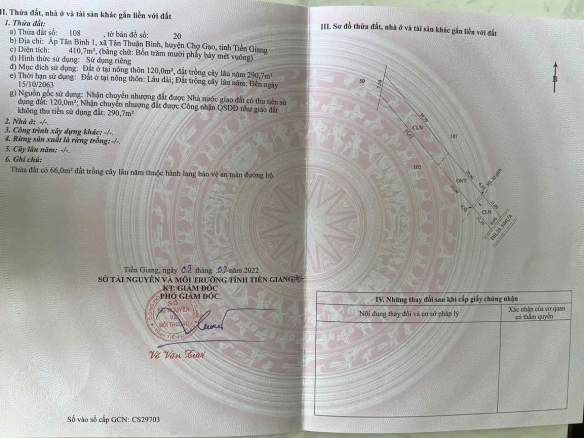 II. Thửa đất, nhà ở và tài sản khác gắn liền với đất
1. Thửa đất:
a) Thửa đất số: 108 , tờ bản đồ số: 20
b) Địa chỉ: Ấp Tân Bình 1, xã Tân Thuận Bình, huyện Chợ Gạo, tỉnh Tiền Giang
c) Diện tích: 410,7m², (bằng chữ: Bốn trăm mười phẩy bảy mét vuông)
d) Hình thức sử dụng: Sử dụng riêng
đ) Mục đích sử dụng: Đất ở tại nông thôn 120,0m², đất trồng cây lâu năm 290,7m²
e) Thời hạn sử dụng: Đất ở tại nông thôn: Lâu dài; Đất trồng cây lâu năm: Đến ngày
15/10/2063
g) Nguồn gốc sử dụng: Nhận chuyển nhượng đất được Nhà nước giao đất có thu tiền sử
dụng đất: 120,0m²; Nhận chuyển nhượng đất được Công nhận QSDĐ như giao đất
không thu tiền sử dụng đất: 290,7m²
2. Nhà ở: -/-.
3. Công trình xây dựng khác: -/-.
4. Rừng sản xuất là rừng trồng: -/-.
5. Cây lâu năm: -/-.
6. Ghi chú:
Thửa đất có 66,0m² đất trồng cây lâu năm thuộc hành lang bảo vệ an toàn đường bộ.
Tiền Giang, ngày 02 tháng 07 năm 2022
SỞ TÀI NGUYÊN VÀ MÔI TRƯỜNG TỈNH TIỀN GIANG
KT. GIÁM ĐỐC
PHÓ GIÁM ĐỐC
SỞ
TÀI NGUYÊN
VÀ
MÔI TRƯỜNG
Số vào sổ cấp GCN: CS29703
III. Sơ đồ thửa đất, nhà ở và tài sản khác gắn liền với đất
B
50
CLN
107
108
ONT
CLN
IV. Những thay đổi sau khi cấp giấy chứng nhận
Nội dung thay đổi và cơ sở pháp lý
Xác nhận của cơ quan
có thẩm quyền